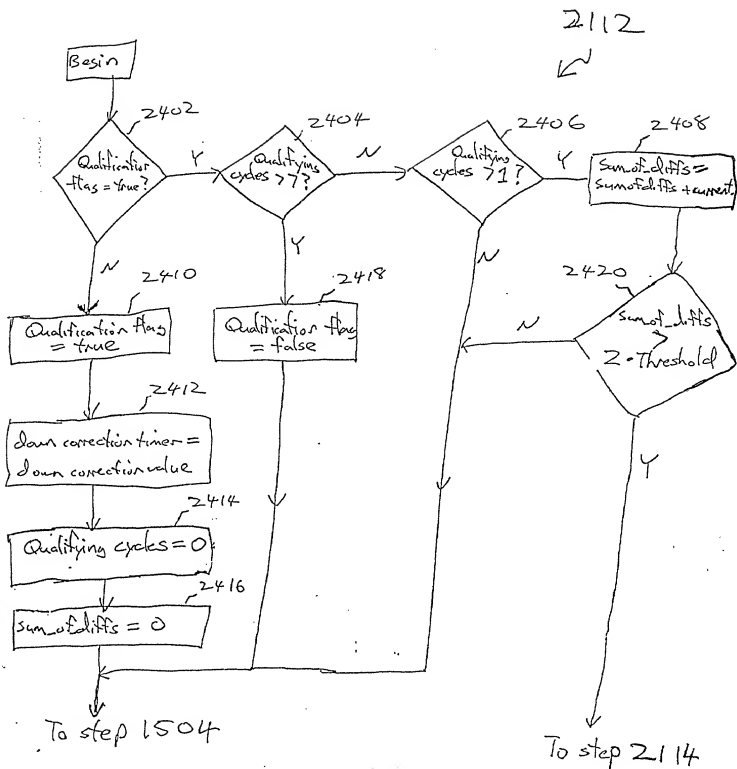 2112
Begin
2402
Qualification
flag = true?
Y
2404
Qualifying
cycles > 7?
N
2406
Qualifying
cycles > 1?
Y
2408
Sum_of_diffs =
sumofdiffs + current
N
Y
N
2410
Qualification flag
= true
2418
Qualification flag
= false
2420
sumof_diffs
>
2 · Threshold
N
Y
2412
down correction timer =
down correction value
2414
Qualifying cycles = 0
2416
sum_ofdiffs = 0
To step 1504
To step 2114